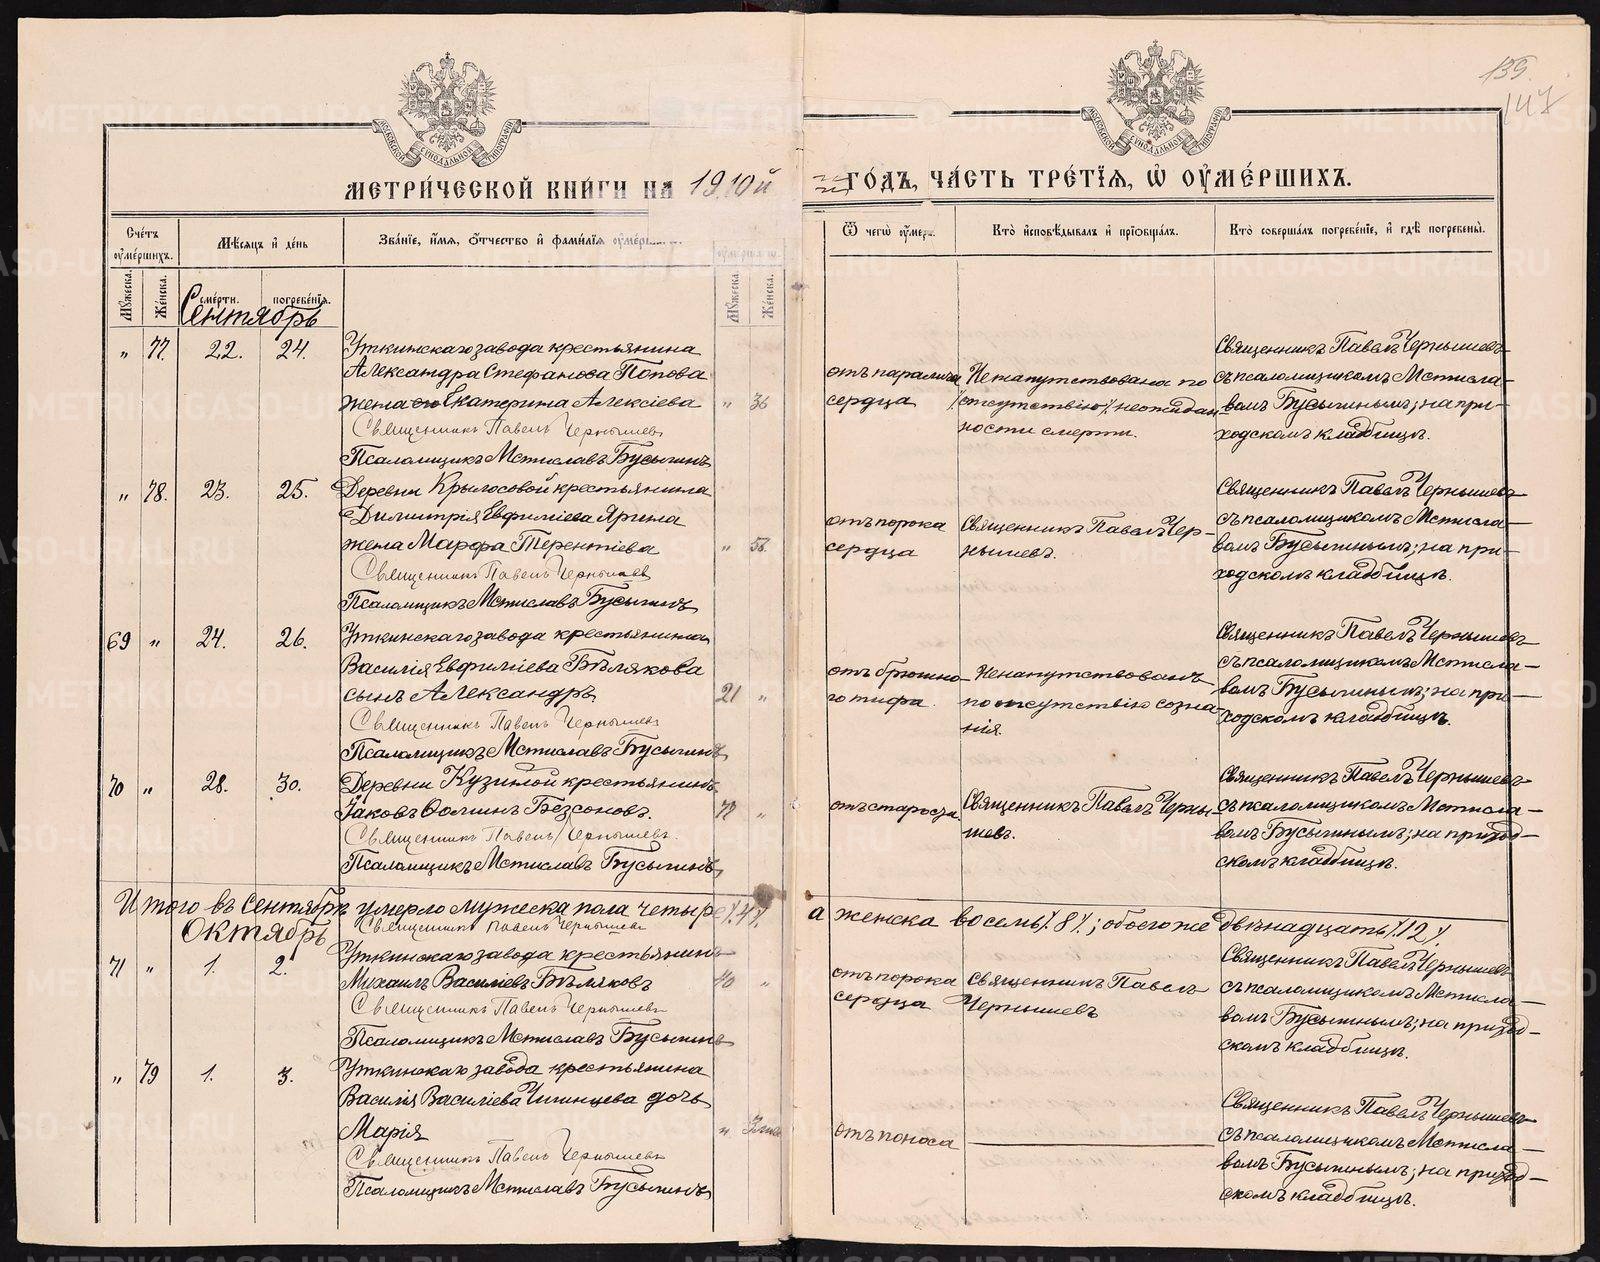 139.
147
МОСКОВСКОЙ СѴНОДАЛЬНОЙ ТИПОГРАФІИ
МОСКОВСКОЙ СѴНОДАЛЬНОЙ ТИПОГРАФІИ
МЕТРИ́ЧЕСКОЙ КНИ́ГИ НА 1910й
ГО́ДЪ, ЧА́СТЬ ТРЕ́ТІѦ, Ѡ ОУМЕ́РШИХЪ.
Сче́тъ оуме́ршихъ.
Мѣ́сяцъ и҆ де́нь
Зва́нїе, и҆́мя, ѻ҆́тчество и҆ фамı́лїя
Ѿ чегѡ̀ оу҆́меръ.
Кто̀ и҆сповѣ́дывалъ и҆ прїѡбща́лъ.
Кто̀ соверша́лъ погребе́нїе, и҆ гдѣ̀ погребены̀.
Мꙋ́жеска.
Же́нска.
сме́рти.
погребе́нїя.
Мꙋ́жеска.
Же́нска.
Сентябрь
„ 77. 22. 24.
Уткинскаго завода крестьянина
Александра Стефанова Попова
жена его Екатерина Алексіева
„ 36
Священникъ Павелъ Чернышевъ
Псаломщикъ Мстиславъ Бусыгинъ
отъ паралича
сердца
Ненапутствована по
отсутствію неожидан-
ности смерти.
Священникъ Павелъ Чернышевъ
съ псаломщикомъ Мстисла-
вомъ Бусыгинымъ; на при-
ходскомъ кладбищѣ.
„ 78. 23. 25.
Деревни Крылосовой крестьянина
Димитрія Евфиміева Ярина
жена Марфа Терентіева
„ 58.
Священникъ Павелъ Чернышевъ
Псаломщикъ Мстиславъ Бусыгинъ
отъ порока
сердца
Священникъ Павелъ Чер-
нышевъ.
Священникъ Павелъ Чернышевъ
съ псаломщикомъ Мстисла-
вомъ Бусыгинымъ; на при-
ходскомъ кладбищѣ.
69 „ 24. 26.
Уткинскаго завода крестьянина
Василія Евфиміева Бѣлякова
сынъ Александръ
21 „
Священникъ Павелъ Чернышевъ
Псаломщикъ Мстиславъ Бусыгинъ
отъ брюшно-
го тифа.
Ненапутствованъ
по отсутствію созна-
нія.
Священникъ Павелъ Чернышевъ
съ псаломщикомъ Мстисла-
вомъ Бусыгинымъ; на при-
ходскомъ кладбищѣ.
70 „ 28. 30.
Деревни Кузиной крестьянинъ
Іаковъ Ѳоминъ Безсоновъ.
78 „
Священникъ Павелъ Чернышевъ.
Псаломщикъ Мстиславъ Бусыгинъ
отъ старости
Священникъ Павелъ Черны-
шевъ.
Священникъ Павелъ Чернышевъ
съ псаломщикомъ Мстисла-
вомъ Бусыгинымъ; на приход-
скомъ кладбищѣ.
Итого въ сентябрѣ умерло мужеска пола четыре /.4/.
а женска восемь /.8/.; обоего же двѣнадцать /.12/.
Священникъ Павелъ Чернышевъ
Октябрь
71 „ 1. 2.
Уткинскаго завода крестьянинъ
Михаилъ Василіевъ Бѣляковъ
40 „
Священникъ Павелъ Чернышевъ
Псаломщикъ Мстиславъ Бусыгинъ
отъ порока
сердца
Священникъ Павелъ
Чернышевъ
Священникъ Павелъ Чернышевъ
съ псаломщикомъ Мстисла-
вомъ Бусыгинымъ; на приход-
скомъ кладбищѣ.
„ 79 1. 3.
Уткинскаго завода крестьянина
Василія Василіева дочь
Марія
„
Священникъ Павелъ Чернышевъ
Псаломщикъ Мстиславъ Бусыгинъ
отъ поноса
Священникъ Павелъ Чернышевъ
съ псаломщикомъ Мстисла-
вомъ Бусыгинымъ; на приход-
скомъ кладбищѣ.
METRIKI.GASO-URAL.RU